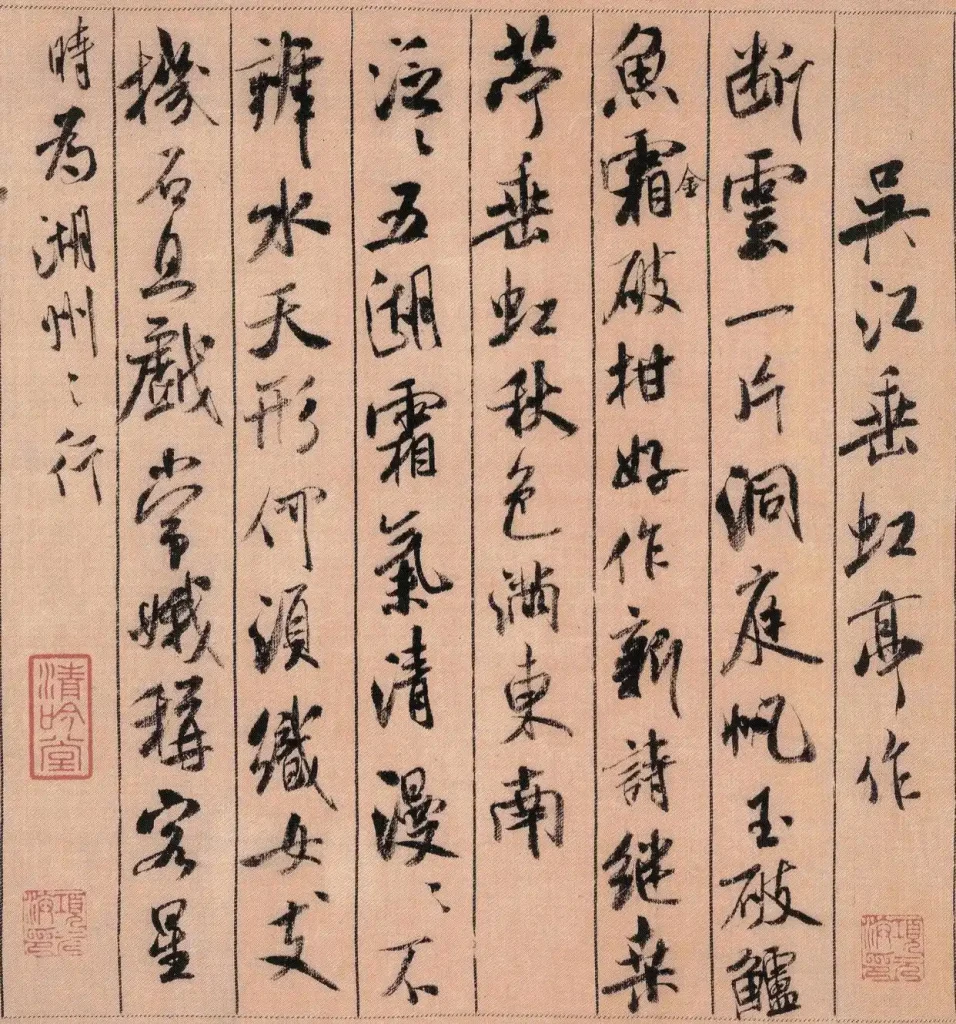 吳江垂虹亭作
断雲一片洞庭帆玉破鱸
魚霜金破柑好作新詩継桑
苧垂虹秋色滿東南
泛〻五湖霜氣清漫〻不
辨水天形何須織女支
機石且戲常娥稱客星
時為湖州之行
清吟堂
項元汴印
項元汴印